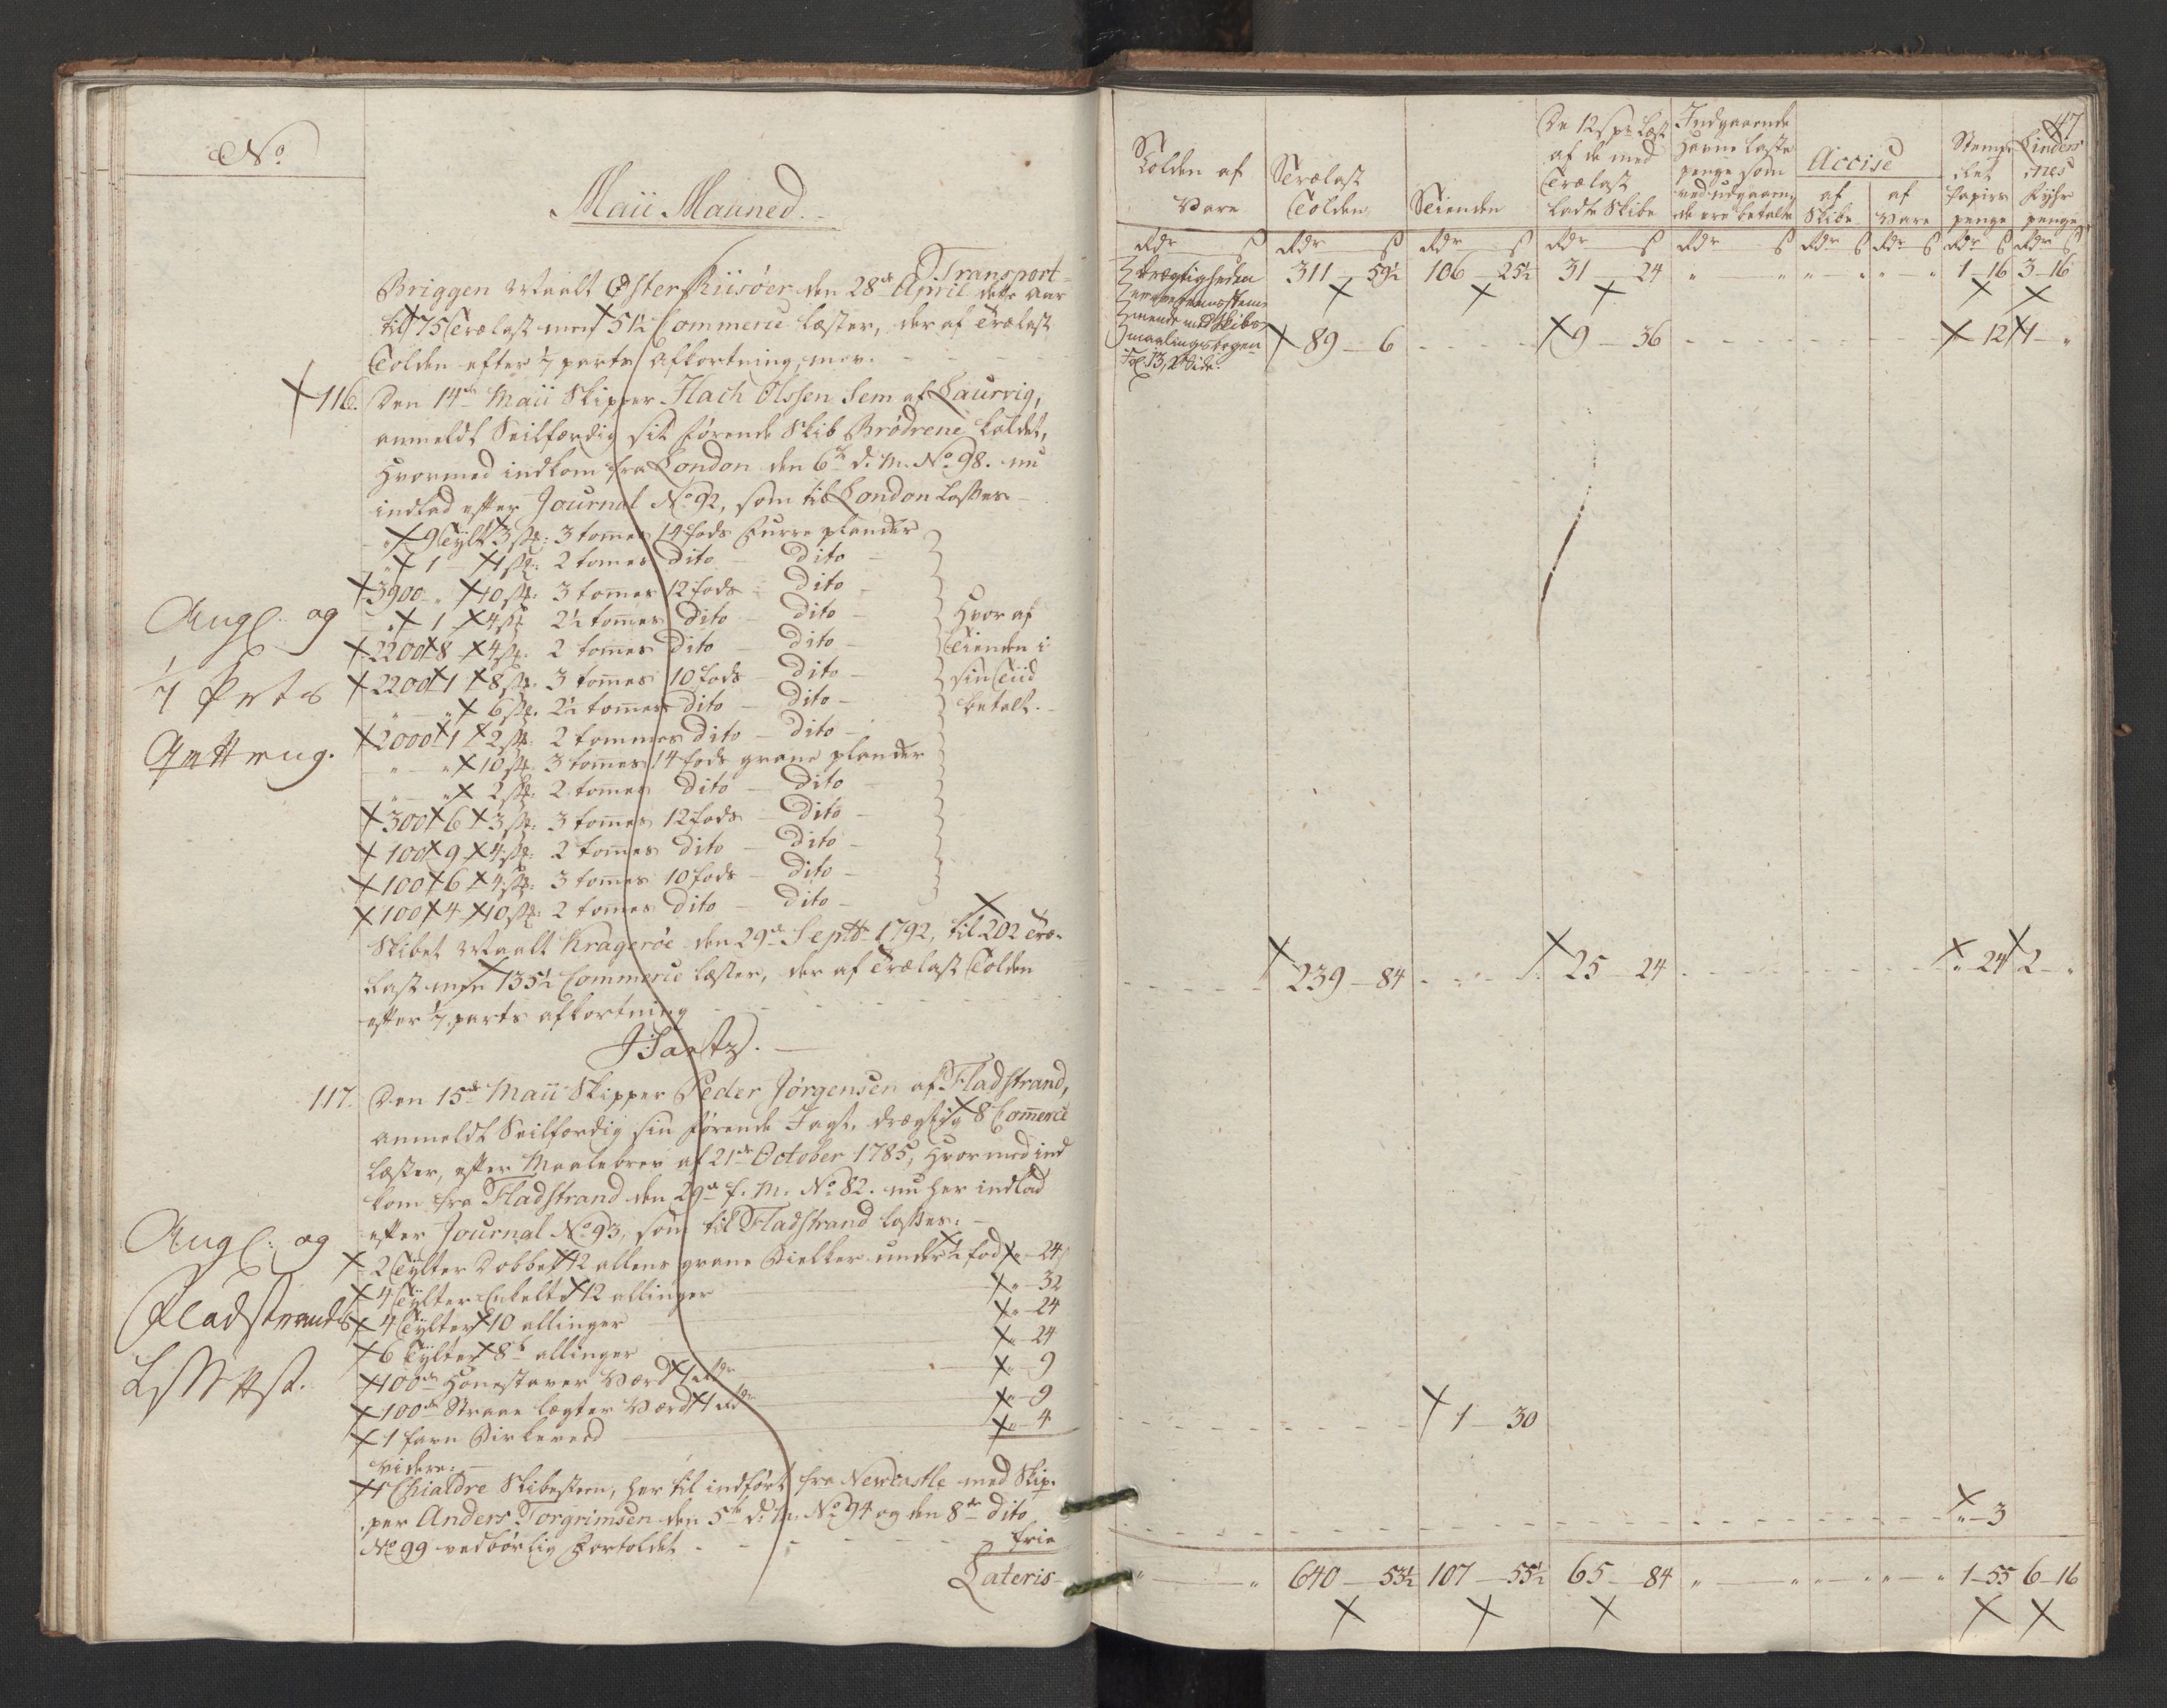 No
Maii Maaned.
Transport
Briggen Maalt Østerriisøer den 28de April dette Aar
til 75 Trælast mens 51½ Commerce læster, der af Trælast
Tolden efter 1/7 parts Afkortning, mer.
116. Den 14de Maii Skipper Hach Olssen Sem af Laurvig,
anmeldt Seilfærdig sit førende Skib Brødrene kaldet,
hvormed indkom fra London den 6te d. M. No 98. nu
indlad efter Journal No 92, som til London losses
9 Tylt 3 st: 3 tommes 14 fods furre planker
1 1 st: 2 tomes dito dito
3900 10 st: 3 tommes 12 fods dito
1 4 st 2½ tomes dito dito
2200 8 4 st. 2 tomes dito dito
2200 1 8 st: 3 tomes 10 fods dito
6 st. 2½ tomes dito dito
2000 1 2 st. 2 tommes dito dito
10 st 3 tomes 14 fods grane planker
2 st: 2 tomes dito dito
300 6 3 st: 3 tomes 12 fods dito
100 9 4 st: 2 tomes dito dito
100 6 4 st: 3 tomes 10 fods dito
100 4 10 st: 2 tomes dito dito
Hvor af
Tienden i
sin Tiid
betalt.
Angl: og
1/7 Parts
Skibet Maalt Kragerøe den 29de Septbr 1792, til 202 Træ-
last men 135½ Commerce læster, der af Trælast Tolden
efter 1/7 parts afkortning
117. Den 15de Maii Skipper Peder Jørgensen af Fladstrand,
anmeldt Seilfærdig sin førende Jagt, drægtig 8 Comerce
læster, efter Maalebrev af 21de October 1785, hvormed ind
kom fra Fladstrand den 29de f. M. No 82. nu her indlad
efter Journal No 93, som til Fladstrand losses.
Angl: og
Fladstrands
2 Tylter Dobbelt 12 allens grane Dielker under ½ fod " 24
4 Tylter Enkelte 12 allinger " 32
4 Tylter 10 allinger " 24
6 Tylter 8te allinger " 24
100de Hønestaver værd 1 Rdr " 9
100de Straae lægter værd 1 Rdr " 9
1 favn Birkeved " 4
videre:
1 Chialdre Skibesteen, her til indført fra Newcastle med Skip-
per Anders Torgrimsen den 5te d. M. No 94 og den 8de dito
No 99 vedbørlig Fortoldet frie
Lateris
47
Tolden af Vare
Trælast Tolden
Tienden
De 12 s pr læst af de med Trælast ladte Skibe
Indgaaende Havne laste penge som ved udgaaende ere betalte
Accise
af Skibe
af Vare
Stempelet Papirs penge
Linders næs Fyhr penge
Rdr s Rdr s Rdr s Rdr s Rdr s Rdr s Rdr s Rdr s Rdr s
311 59½ 106 25½ 31 24 " " " " " " 1 16 3 16
Drægtigheden
overensstem-
mende med Skibs
maalingsbogen
Fol 13, 2 Side.
89 6 9 36 12 1 "
239 84 25 24 " 24 2 "
1 30
" 3
" " 640 53½ 107 55½ 65 84 " " " " " " 1 55 6 16